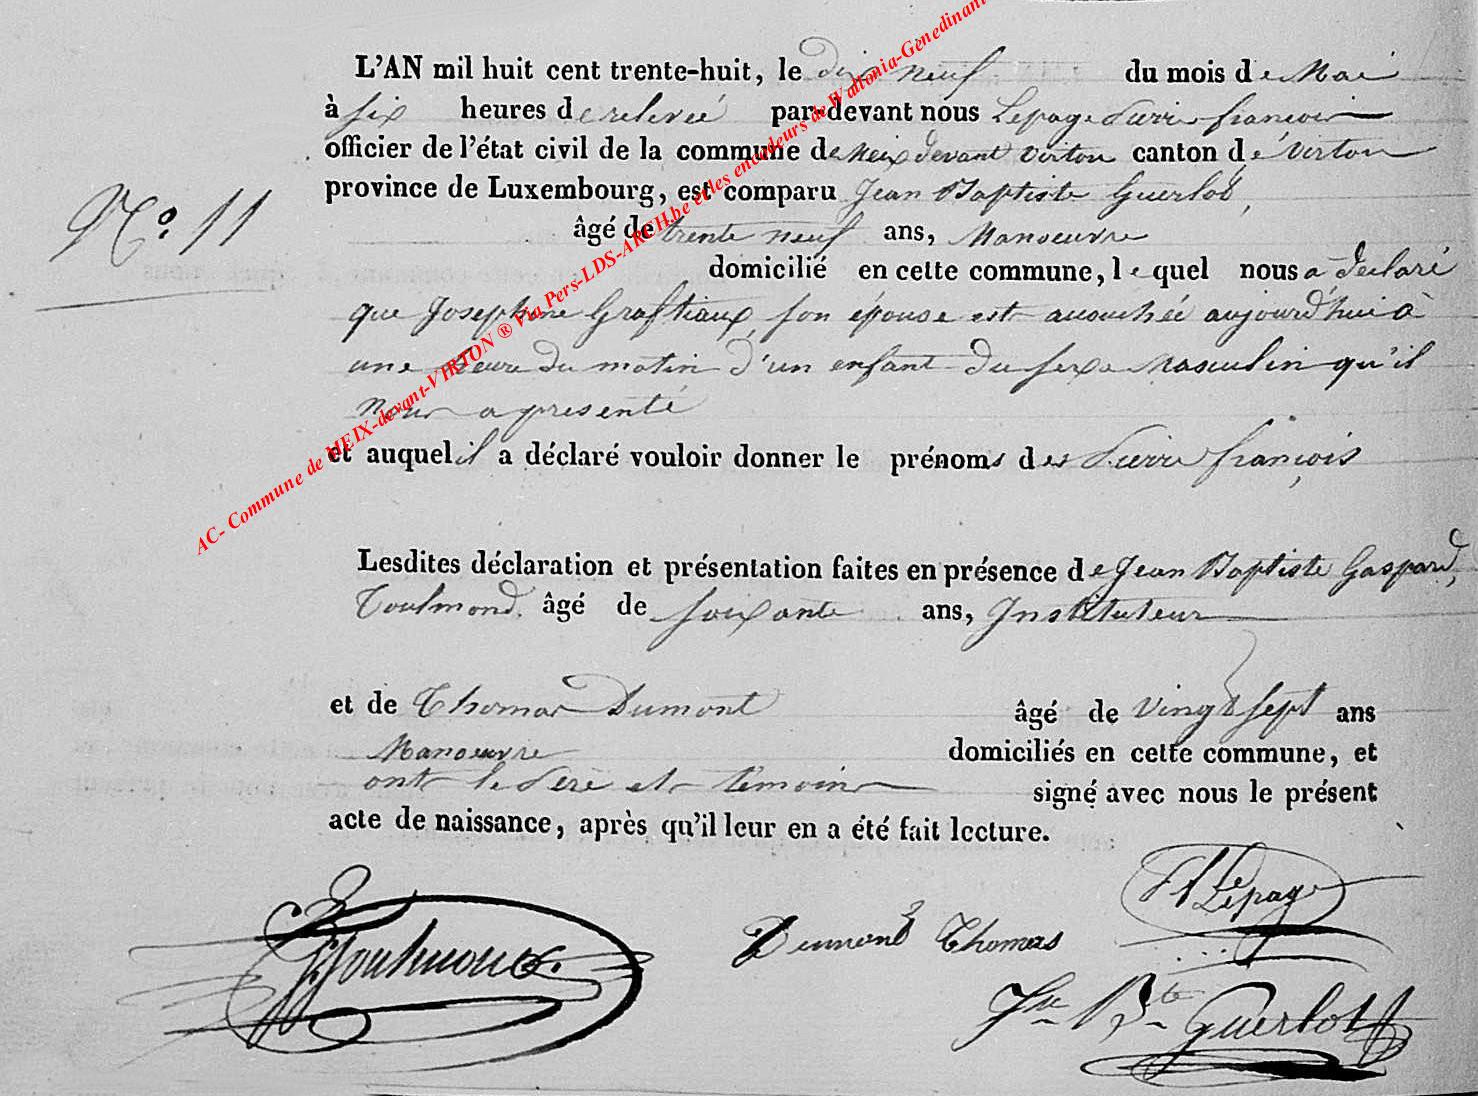 L'AN mil huit cent trente-huit, le dix neuf du mois de Mai
à six heures de relevée par-devant nous Lepage Pierre françois
officier de l'état civil de la commune de Meix devant Virton canton de Virton
province de Luxembourg, est comparu Jean Baptiste Guerlot,
N.º 11
âgé de trente neuf ans, Manoeuvre
domicilié en cette commune, lequel nous a déclaré
que Josephine Graftiaux, son épouse est accouchée aujourd'hui à
une heure du matin d'un enfant du sexe Masculin qu'il
nous a présenté
et auquel il a déclaré vouloir donner le prénoms des Pierre françois
Lesdites déclaration et présentation faites en présence de Jean Baptiste Gaspard,
Toulmond, âgé de soixante ans, Instituteur
et de Thomas Dumont âgé de Vingt Sept ans
Manoeuvre domiciliés en cette commune, et
ont le Père et témoins signé avec nous le présent
acte de naissance, après qu'il leur en a été fait lecture.
Lepage
Toulmond. Dumont Thomas
Jn Bte Guerlot
AC- Commune de MEIX-devant-VIRTON ® Via Pers-LDS-ARCH.be et les encodeurs de Wallonia-Genedinant